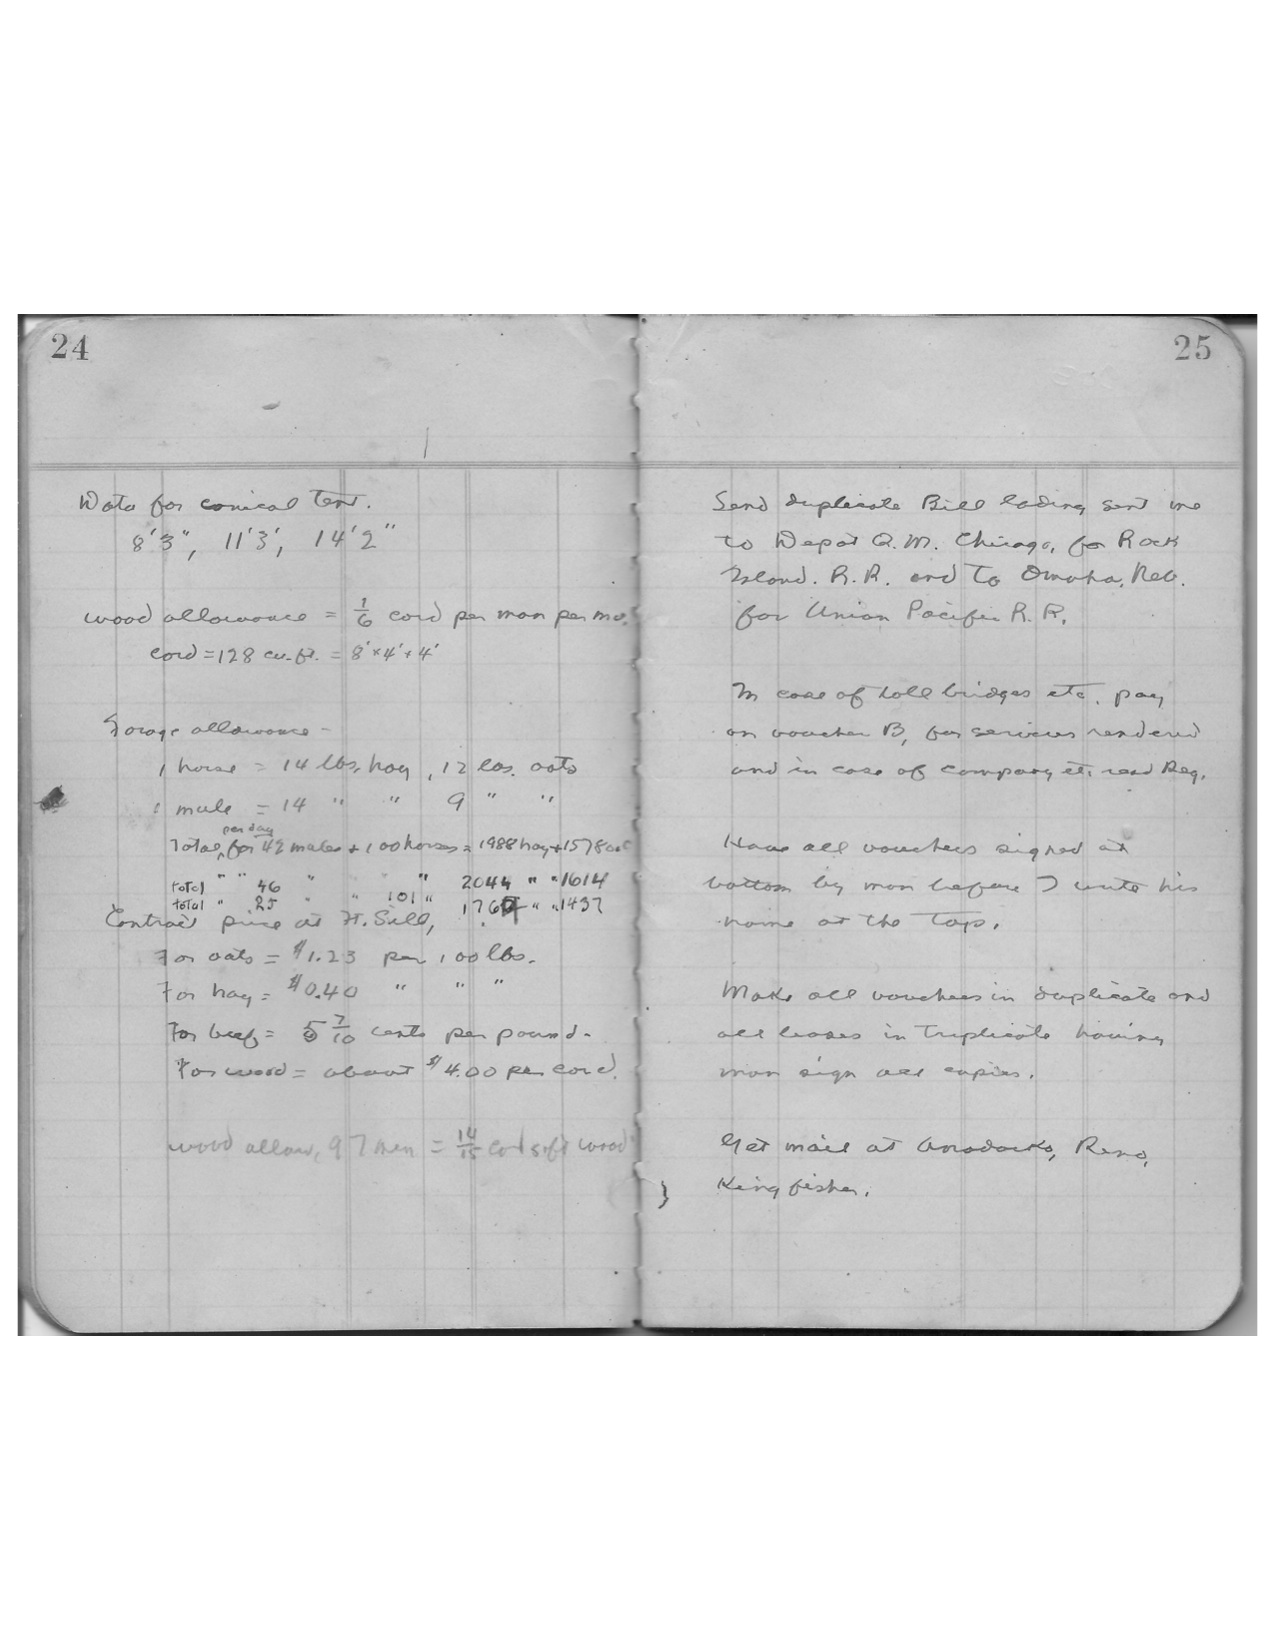 24
Data for conical Tent.
8'3", 11'3', 14'2"
wood allowance = 1/6 cord per man per mo.
cord = 128 cu. ft. = 8'×4'×4'
Forage allowance -
1 horse = 14 lbs. hay, 12 lbs. oats
1 mule = 14 " " 9 " "
per day
Total, for 42 mules + 100 horses = 1988 hay + 1578 oats
total " " 46 " " " 2044 " " 1614
total " 25 " " 101 " 1764 " " 1437
Contract price at Ft. Sill,
For oats = $1.23 per 100 lbs.
For hay = $0.40 " " "
For beef = 5 7/10 cents per pound.
For wood = about $4.00 per cord.
wood allow, 97 men = 14/15 cord soft wood
25
Send duplicate Bill lading sent me
to Depot Q.M. Chicago, for Rock
Island. R.R. and to Omaha, Neb.
for Union Pacific R.R.
In case of toll bridges etc. pay
on voucher B, for services rendered
and in case of company etc. read Reg.
Have all vouchers signed at
bottom by man before I write his
name at the top.
Make all vouchers in duplicate and
all leases in triplicate having
man sign all copies.
Get mail at Anadarko, Reno,
Kingfisher.